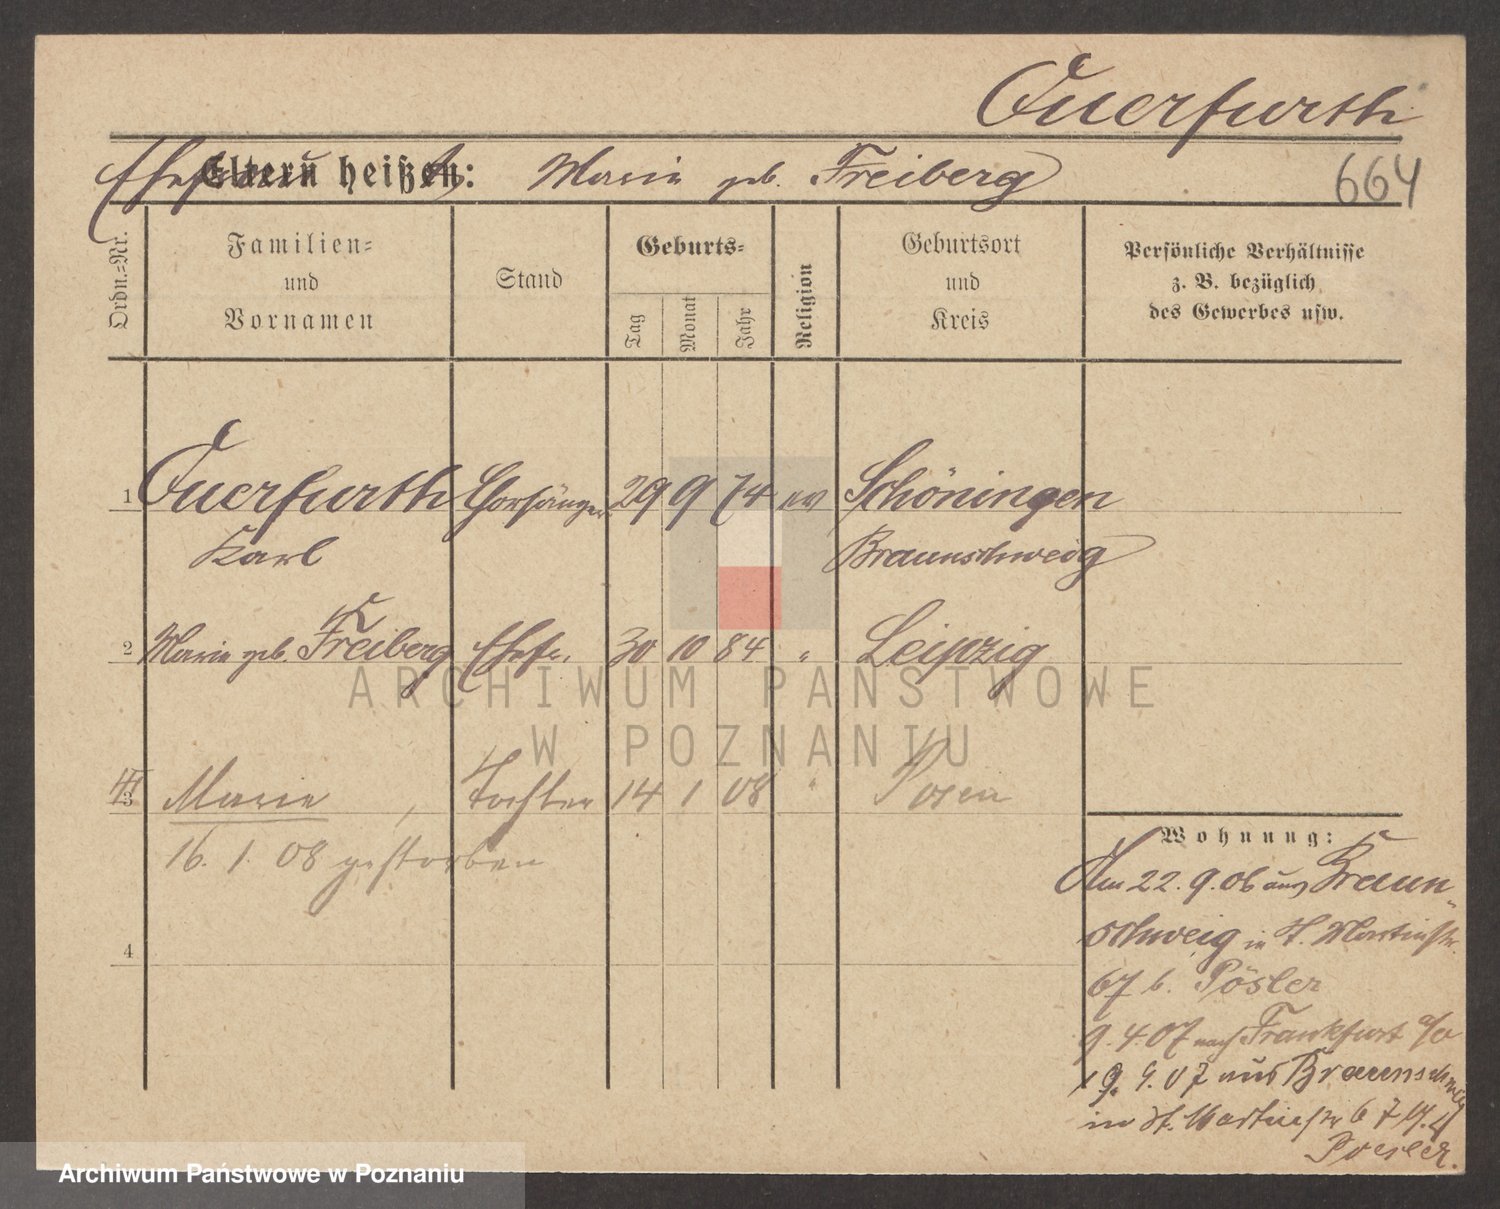 Querfurth
Eltern heißen: Marie geb. Freiberg
664
Ordn.=Nr.
Familien=
und
Vornamen
Stand
Geburts=
Tag
Monat
Jahr
Religion
Geburtsort
und
Kreis
Persönliche Verhältnisse
z. B. bezüglich
des Gewerbes usw.
1 Querfurth Chorsänger 29 9 74 ev Schöningen
Karl Braunschweig
2 Marie geb. Freiberg Ehefr. 30 10 84 " Leipzig
3 Marie, Tochter 14 1 08 " Posen
16. 1. 08 gestorben
4
Wohnung:
Am 22. 9. 06 aus Braun-
schweig in St. Martinstr.
67 b. Pösler
9. 4. 07 nach Frankfurt a/o
19. 9. 07 aus Braunschweig
in St. Martinstr 67
Poesler.
ARCHIWUM PAŃSTWOWE
W POZNANIU
Archiwum Państwowe w Poznaniu